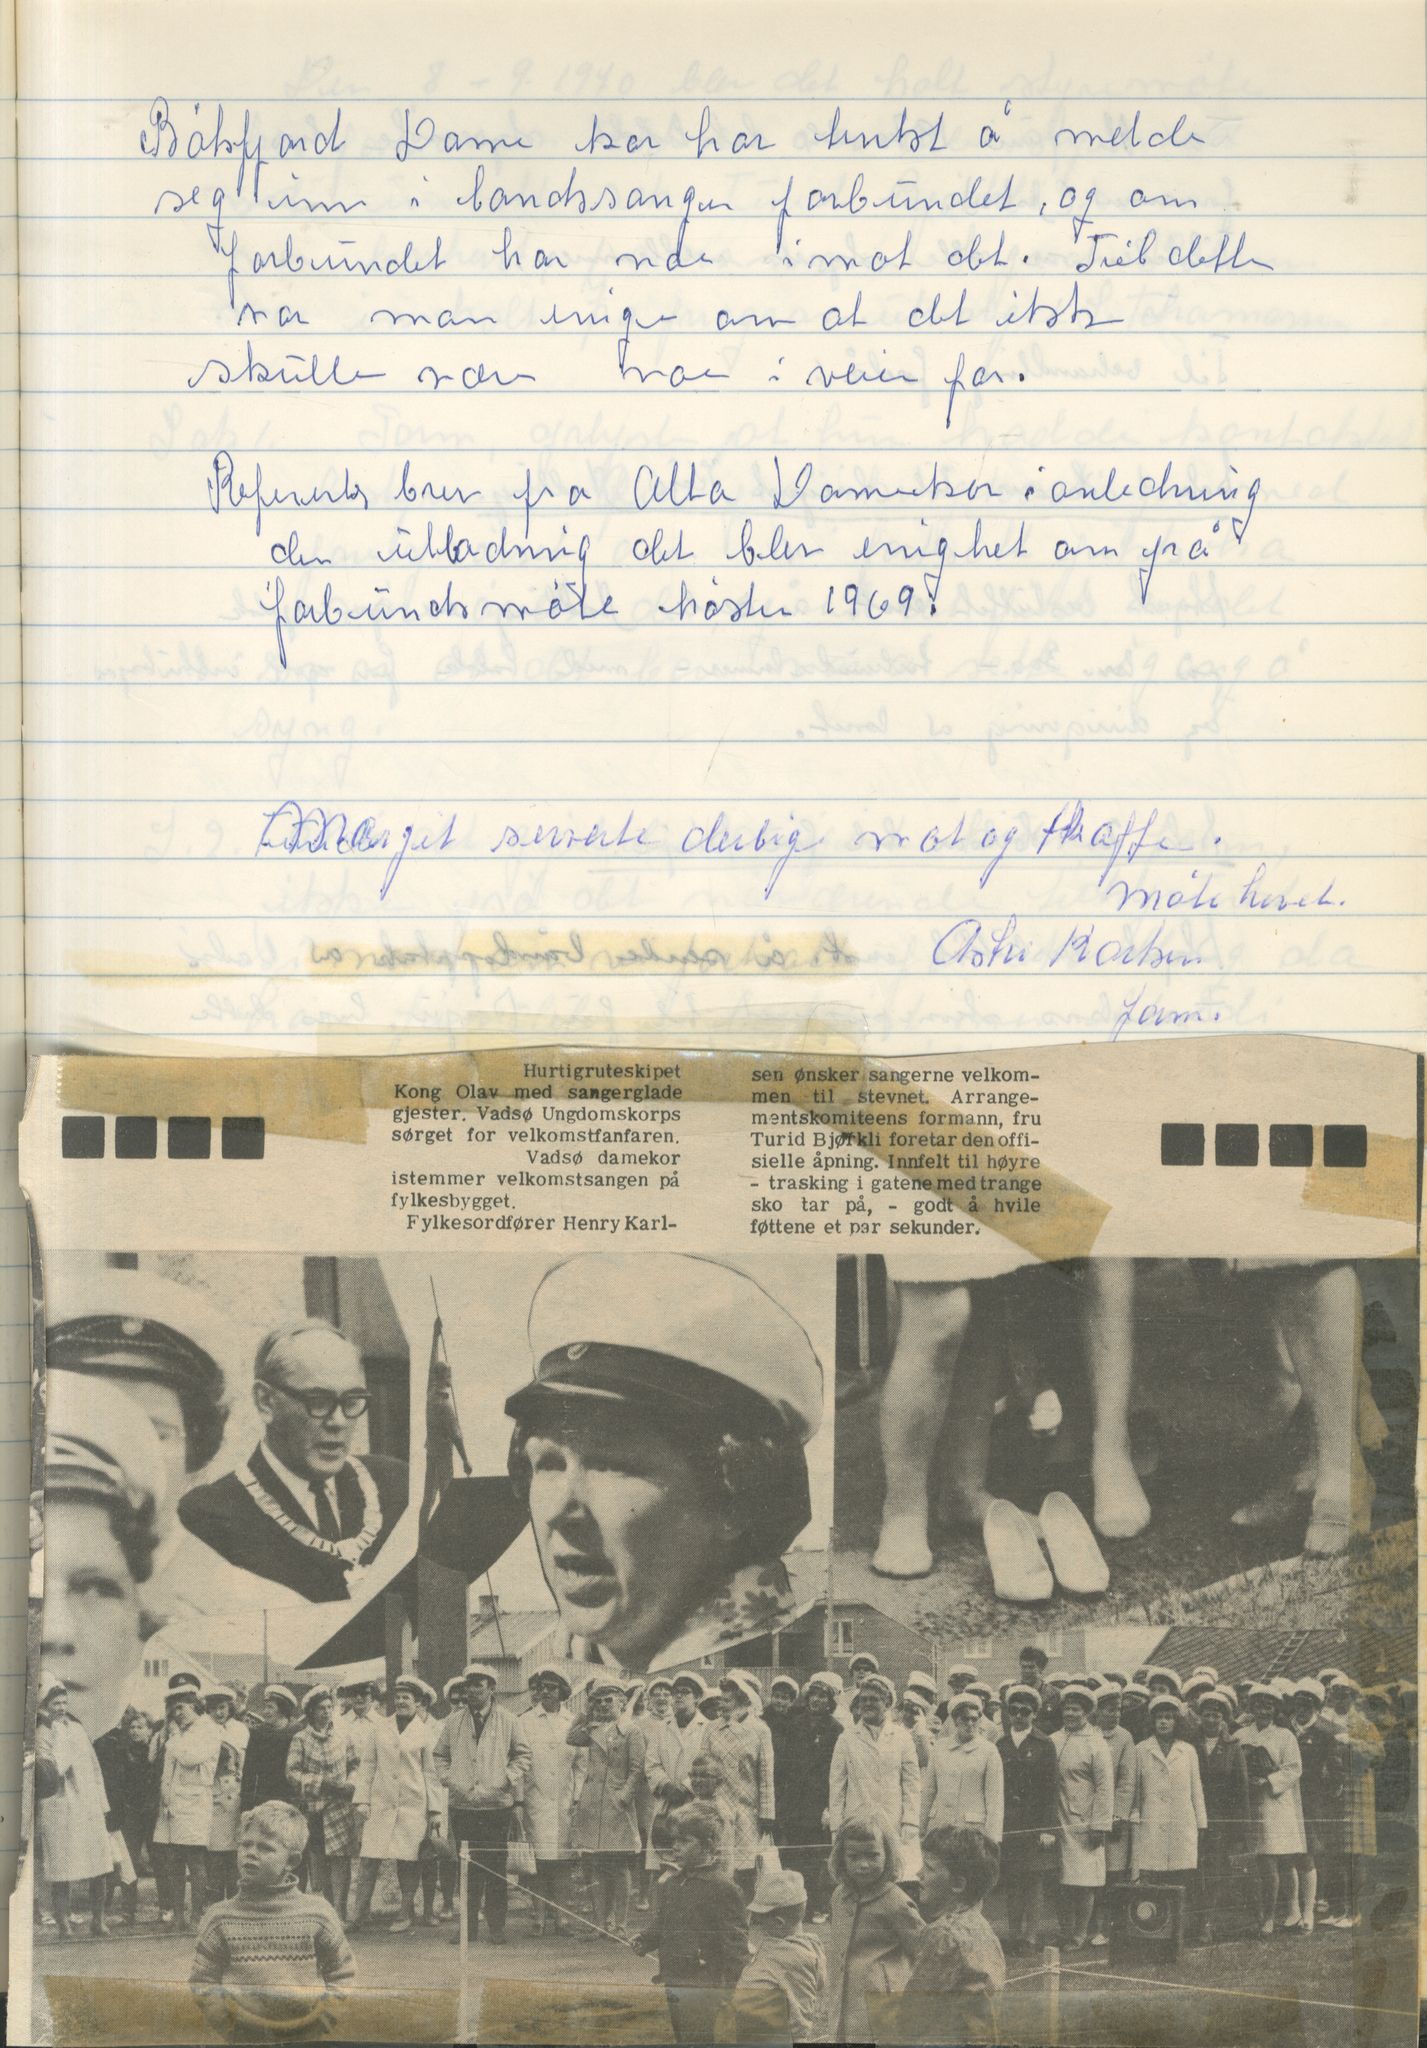 Båtsfjord Dame kor har tenkt å melde
seg inn i landssanger forbundet, og om
forbundet har noe imot det. Till dette
var man enige om at det ikke
skulle være noe i veien for.
Refererte brev fra Alta Damekor i anledning
den utladning det blev enighet om på
forbundsmöte hösten 1969.
Margit serverte deilig mat og kaffe.
Möte hevet.
Astri Karlsen
form.
Hurtigruteskipet
Kong Olav med sangerglade
gjester. Vadsø Ungdomskorps
sørget for velkomstfanfaren.
Vadsø damekor
istemmer velkomstsangen på
fylkesbygget.
Fylkesordfører Henry Karl-
sen ønsker sangerne velkom-
men til stevnet. Arrange-
mentskomiteens formann, fru
Turid Bjørkli foretar den offi-
sielle åpning. Innfelt til høyre
- trasking i gatene med trange
sko tar på, - godt å hvile
føttene et par sekunder.